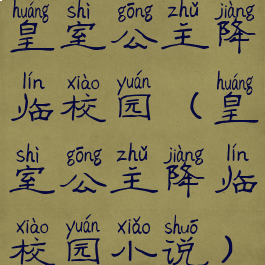 huáng shì gōng zhǔ jiàng
皇室公主降
lín xiào yuán huáng
临校园（皇
shì gōng zhǔ jiàng lín
室公主降临
xiào yuán xiǎo shuō
校园小说）